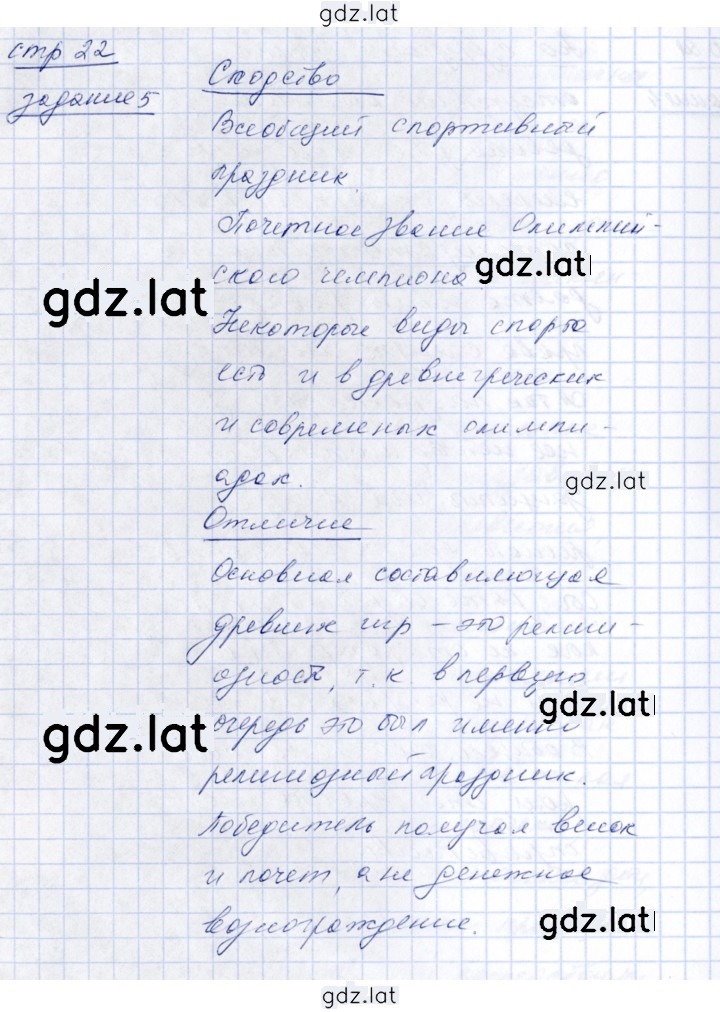 gdz.lat
стр 22
задание 5
Сходство
Всеобщий спортивный
праздник.
Почетное звание Олимпий-
ского чемпиона
gdz.lat
gdz.lat
Некоторые виды спорта
есть и в древнегреческих
и современых олимпи-
адах.
gdz.lat
Отличие
Основная составляющая
древних игр – это религи-
озность, т.к в первую
gdz.lat
очередь это был именно
gdz.lat
религиозный праздник.
Победитель получал венок
и почет, а не денежное
вознограждение.
gdz.lat
gdz.lat